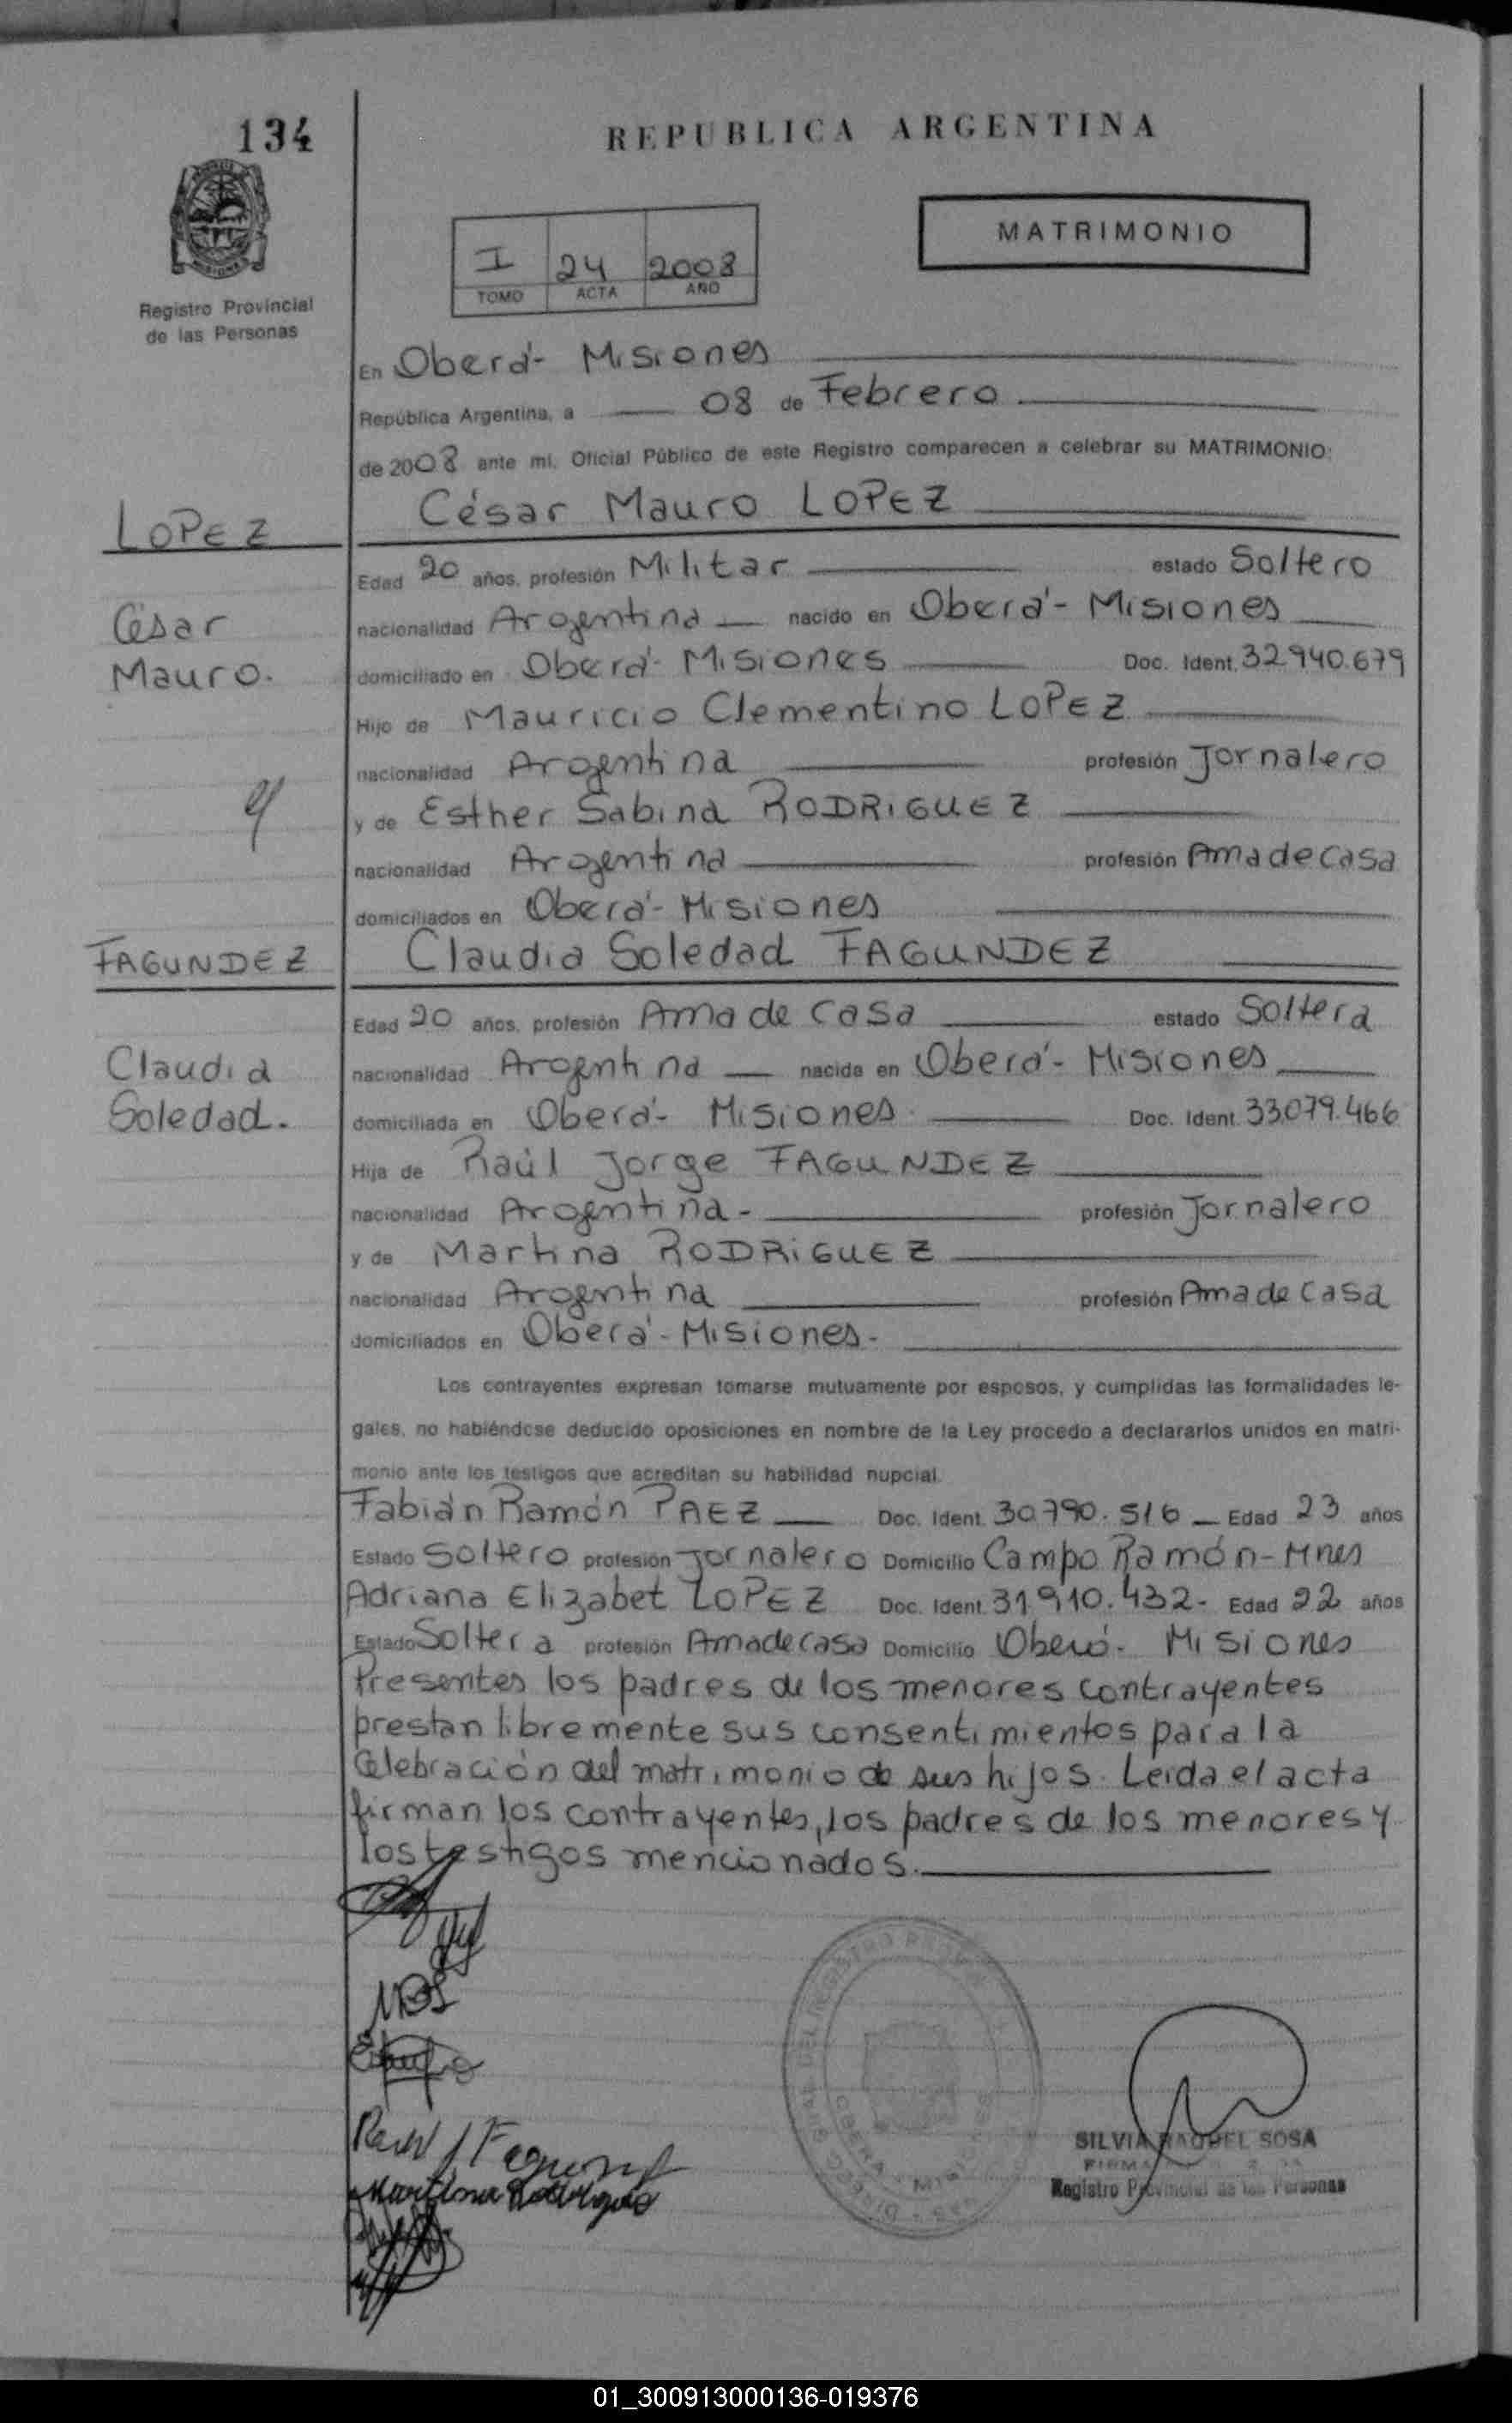 134
REPUBLICA ARGENTINA
MATRIMONIO
I 24 2008
TOMO ACTA AÑO
Registro Provincial
de las Personas
En Oberá - Misiones
República Argentina, a 08 de Febrero
de 2008 ante mi, Oficial Público de este Registro comparecen a celebrar su MATRIMONIO:
LOPEZ César Mauro LOPEZ
Edad 20 años, profesión Militar estado Soltero
César nacionalidad Argentina nacido en Oberá - Misiones
Mauro. domiciliado en Oberá - Misiones Doc. Ident. 32.940.679
Hijo de Mauricio Clementino LOPEZ
nacionalidad Argentina profesión Jornalero
y
y de Esther Sabina RODRIGUEZ
nacionalidad Argentina profesión Ama de casa
domiciliados en Oberá - Misiones
FAGUNDEZ Claudia Soledad FAGUNDEZ
Edad 20 años, profesión Ama de casa estado Soltera
Claudia nacionalidad Argentina nacida en Oberá - Misiones
Soledad. domiciliada en Oberá - Misiones Doc. Ident. 33.079.466
Hija de Raúl Jorge FAGUNDEZ
nacionalidad Argentina - profesión Jornalero
y de Martina RODRIGUEZ
nacionalidad Argentina profesión Ama de casa
domiciliados en Oberá - Misiones -
Los contrayentes expresan tomarse mutuamente por esposos, y cumplidas las formalidades le-
gales, no habiéndose deducido oposiciones en nombre de la Ley procedo a declararlos unidos en matri-
monio ante los testigos que acreditan su habilidad nupcial.
Fabián Ramón PAEZ Doc. Ident. 30.790.516 Edad 23 años
Estado Soltero profesión Jornalero Domicilio Campo Ramón - Mnes
Adriana Elizabet LOPEZ Doc. Ident. 31.910.432 - Edad 22 años
Estado Soltera profesión Ama de casa Domicilio Oberá - Misiones
Presentes los padres de los menores contrayentes
prestan libremente sus consentimientos para la
celebración del matrimonio de sus hijos. Leida el acta
firman los contrayentes, los padres de los menores y
los testigos mencionados.
Martina Rodriguez
SILVIA RAQUEL SOSA
Registro Provincial de las Personas
01_300913000136-019376